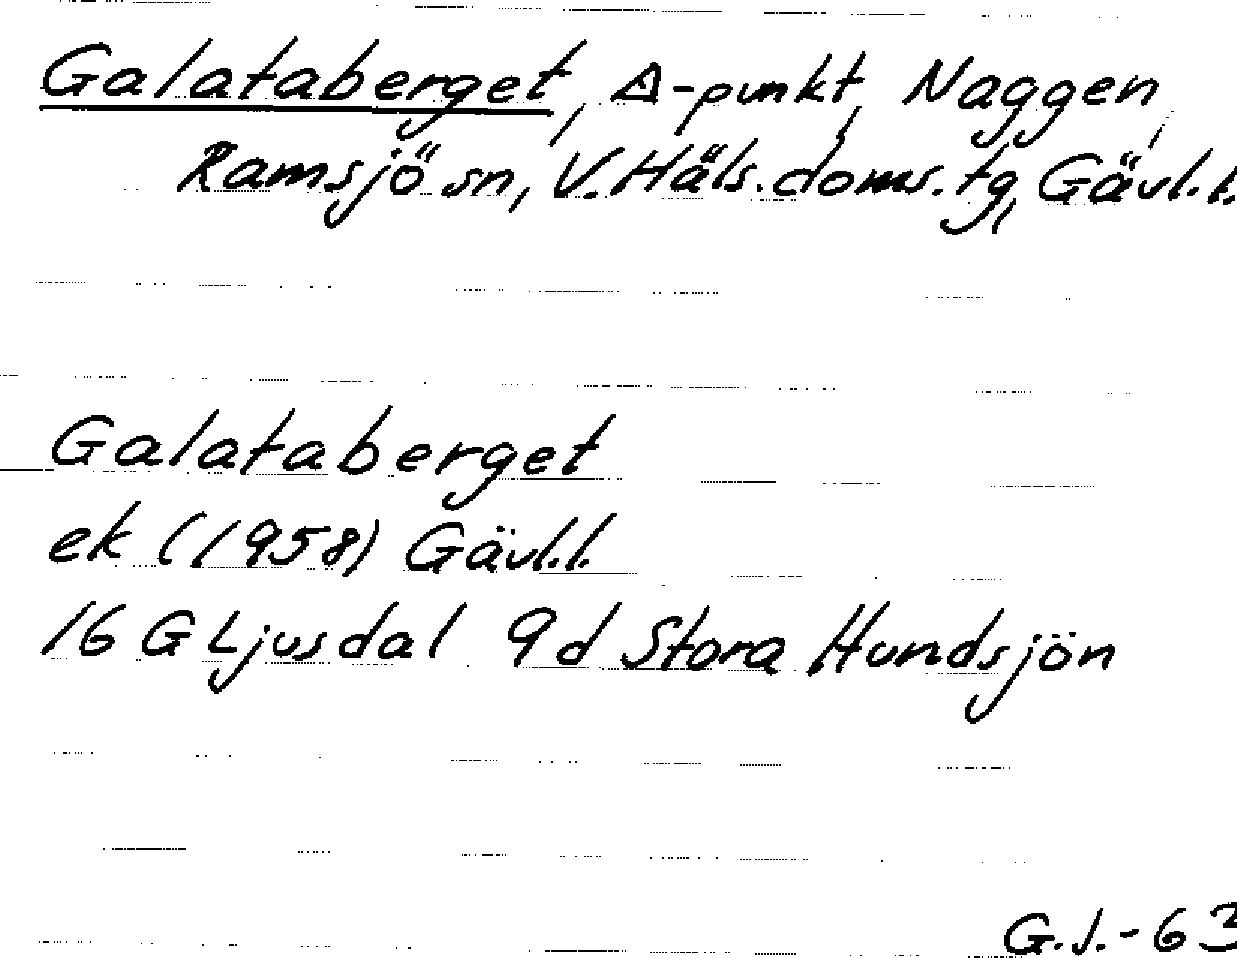 Galataberget, Δ-punkt, Naggen,
Ramsjö sn, V. Häls. doms. tg, Gävl.l.
Galataberget
ek (1958) Gävl.l.
16 G Ljusdal 9d Stora Hundsjön
G.J.-63